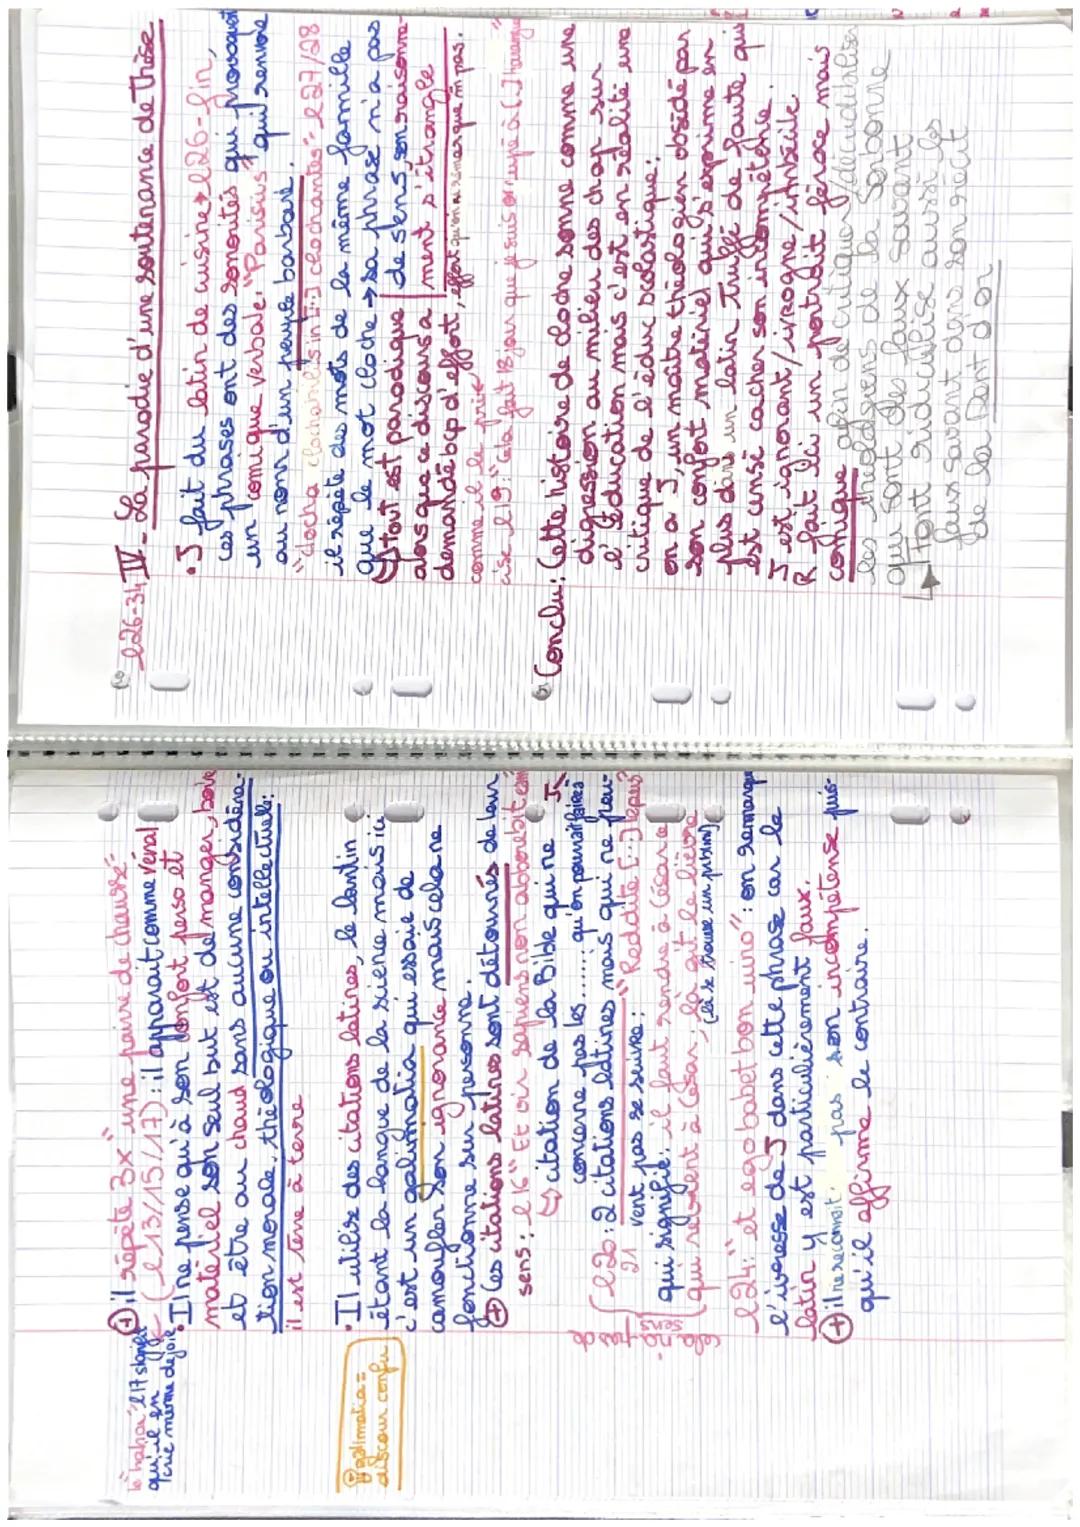 ⊕ il répète 3x "une paire de chausse"
(l13/15/17) : il apparait comme vénal
le "hahai" l17 signifie
qu'il en
crie même de joie
• Il ne pense qu'à son confort perso et
matériel son seul but est de manger, boire
et être au chaud sans aucune considéra-
tion morale, théologique ou intellectuelle :
il est terre à terre
• Il utilise des citations latines, le lantin
étant la langue de la science mais ici
c'est un galimatia qui essaie de
camoufler son ignorance mais cela ne
fonctionne sur personne.
⊕ galimatia =
discour confu
⊕ Ces citations latines sont détournés de leur
sens : l16 "Et vir sapiens non abhorrebit eam"
↳ citation de la Bible qui ne
concerne pas les ...... qu'on pourrait faire à J
l20 : 2 citations latines mais qui ne peu-
21 vent pas se suivre : "Reddite [...] lepus"
qui signifie : il faut rendre à César ce
qui revient à César ; là gît le lièvre
(là se trouve un pblm)
cela n'a
pas de
sens
l24 : "et ego habet bon vino" : on remarque
l'ivresse de J dans cette phrase car le
latin y est particulièrement faux.
⊕ il ne reconnait pas son incompétense puis-
qu'il affirme le contraire.
l26-34 IV - La parodie d'une soutenance de thèse
• J fait du latin de cuisine → l26-fin,
ces phrases ont des sonorités qui provoquent
un comique verbale. "Parisius" qui renvoie
au nom d'un peuple barbare.
"clocha clochabilis in [...] clochantes" l27/28
il répète des mots de la même famille
que le mot cloche → sa phrase n'a pas
de sens, son raisonne-
ment s'étrangle
↳ tout est parodique
alors que ce discours a
demandé bcp d'effort, effort qu'on ne remarque m̂ pas.
comme il le prise
l19 : "Cela fait 18 jour que je suis occupé à [...] harangue"
Conclu : Cette histoire de cloche sonne comme une
digression au milieu des chap sur
l'éducation mais c'est en réalité une
critique de l'éduc scolastique :
on a J, un maître théologien obsédé par
son confort matériel qui s'exprime en
plus dans un latin truffé de faute qui
est censé cacher son incompétence.
J est ignorant/ivrogne/imbécile.
R fait ici un portrait féroce mais
comique afin de critiquer/décrédibiliser
les théologiens de la Sorbonne
qui sont des faux savant
↳ Font ridiculise aussi les
faux savant dans son récit
de la Dent d'or